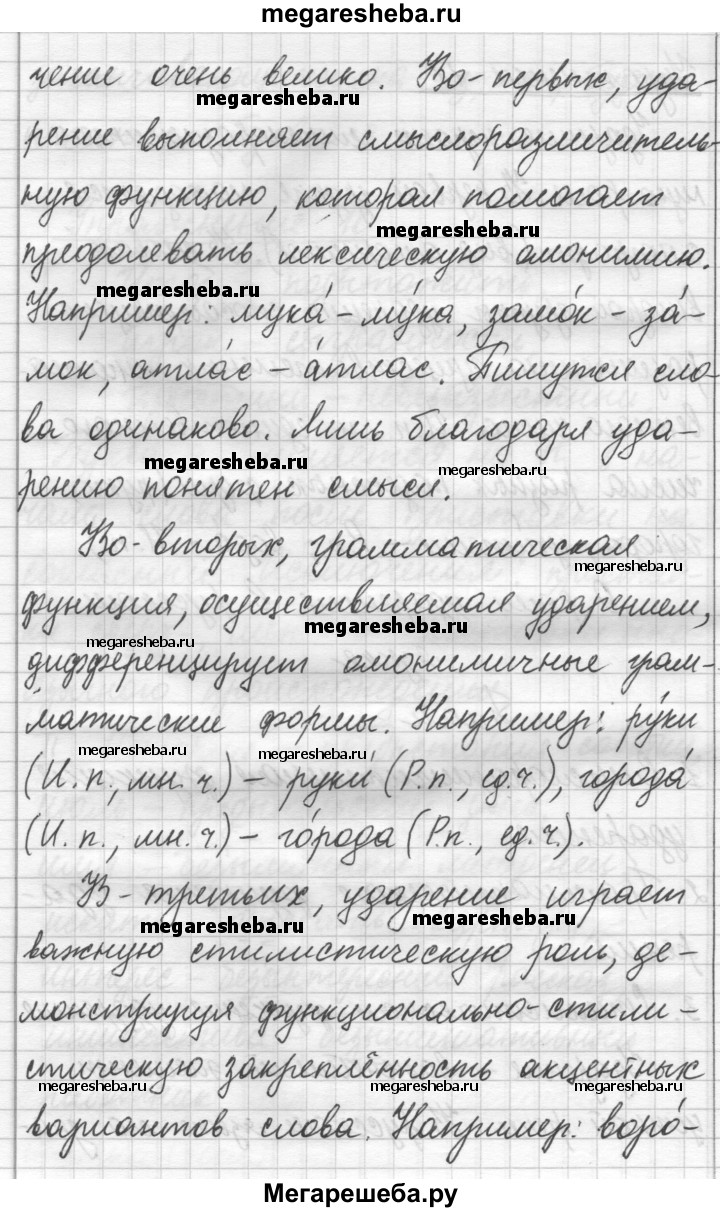 megaresheba.ru
чение очень велико. Во-первых, уда-
megaresheba.ru
рение выполняет смыслоразличитель-
ную функцию, которая помогает
megaresheba.ru
преодолевать лексическую омонимию.
megaresheba.ru
Например: мука́ - му́ка, замо́к - за́-
мок, атла́с - а́тлас. Пишутся сло-
ва одинаково. Лишь благодаря уда-
megaresheba.ru megaresheba.ru
рению понятен смысл.
Во-вторых, грамматическая
megaresheba.ru
функция, осуществляемая ударением,
megaresheba.ru megaresheba.ru
дифференцирует омонимичные грам-
матические формы. Например: ру́ки
megaresheba.ru megaresheba.ru
(И.п., мн.ч.) - руки́ (Р.п., ед.ч.), города́
(И.п., мн.ч.) - го́рода (Р.п., ед.ч.).
В-третьих, ударение играет
megaresheba.ru megaresheba.ru
важную стилистическую роль, де-
монстрируя функционально-стили-
стическую закреплённость акцентных
megaresheba.ru megaresheba.ru megaresheba.ru
вариантов слова. Например: воро́-
Мегарешеба.ру